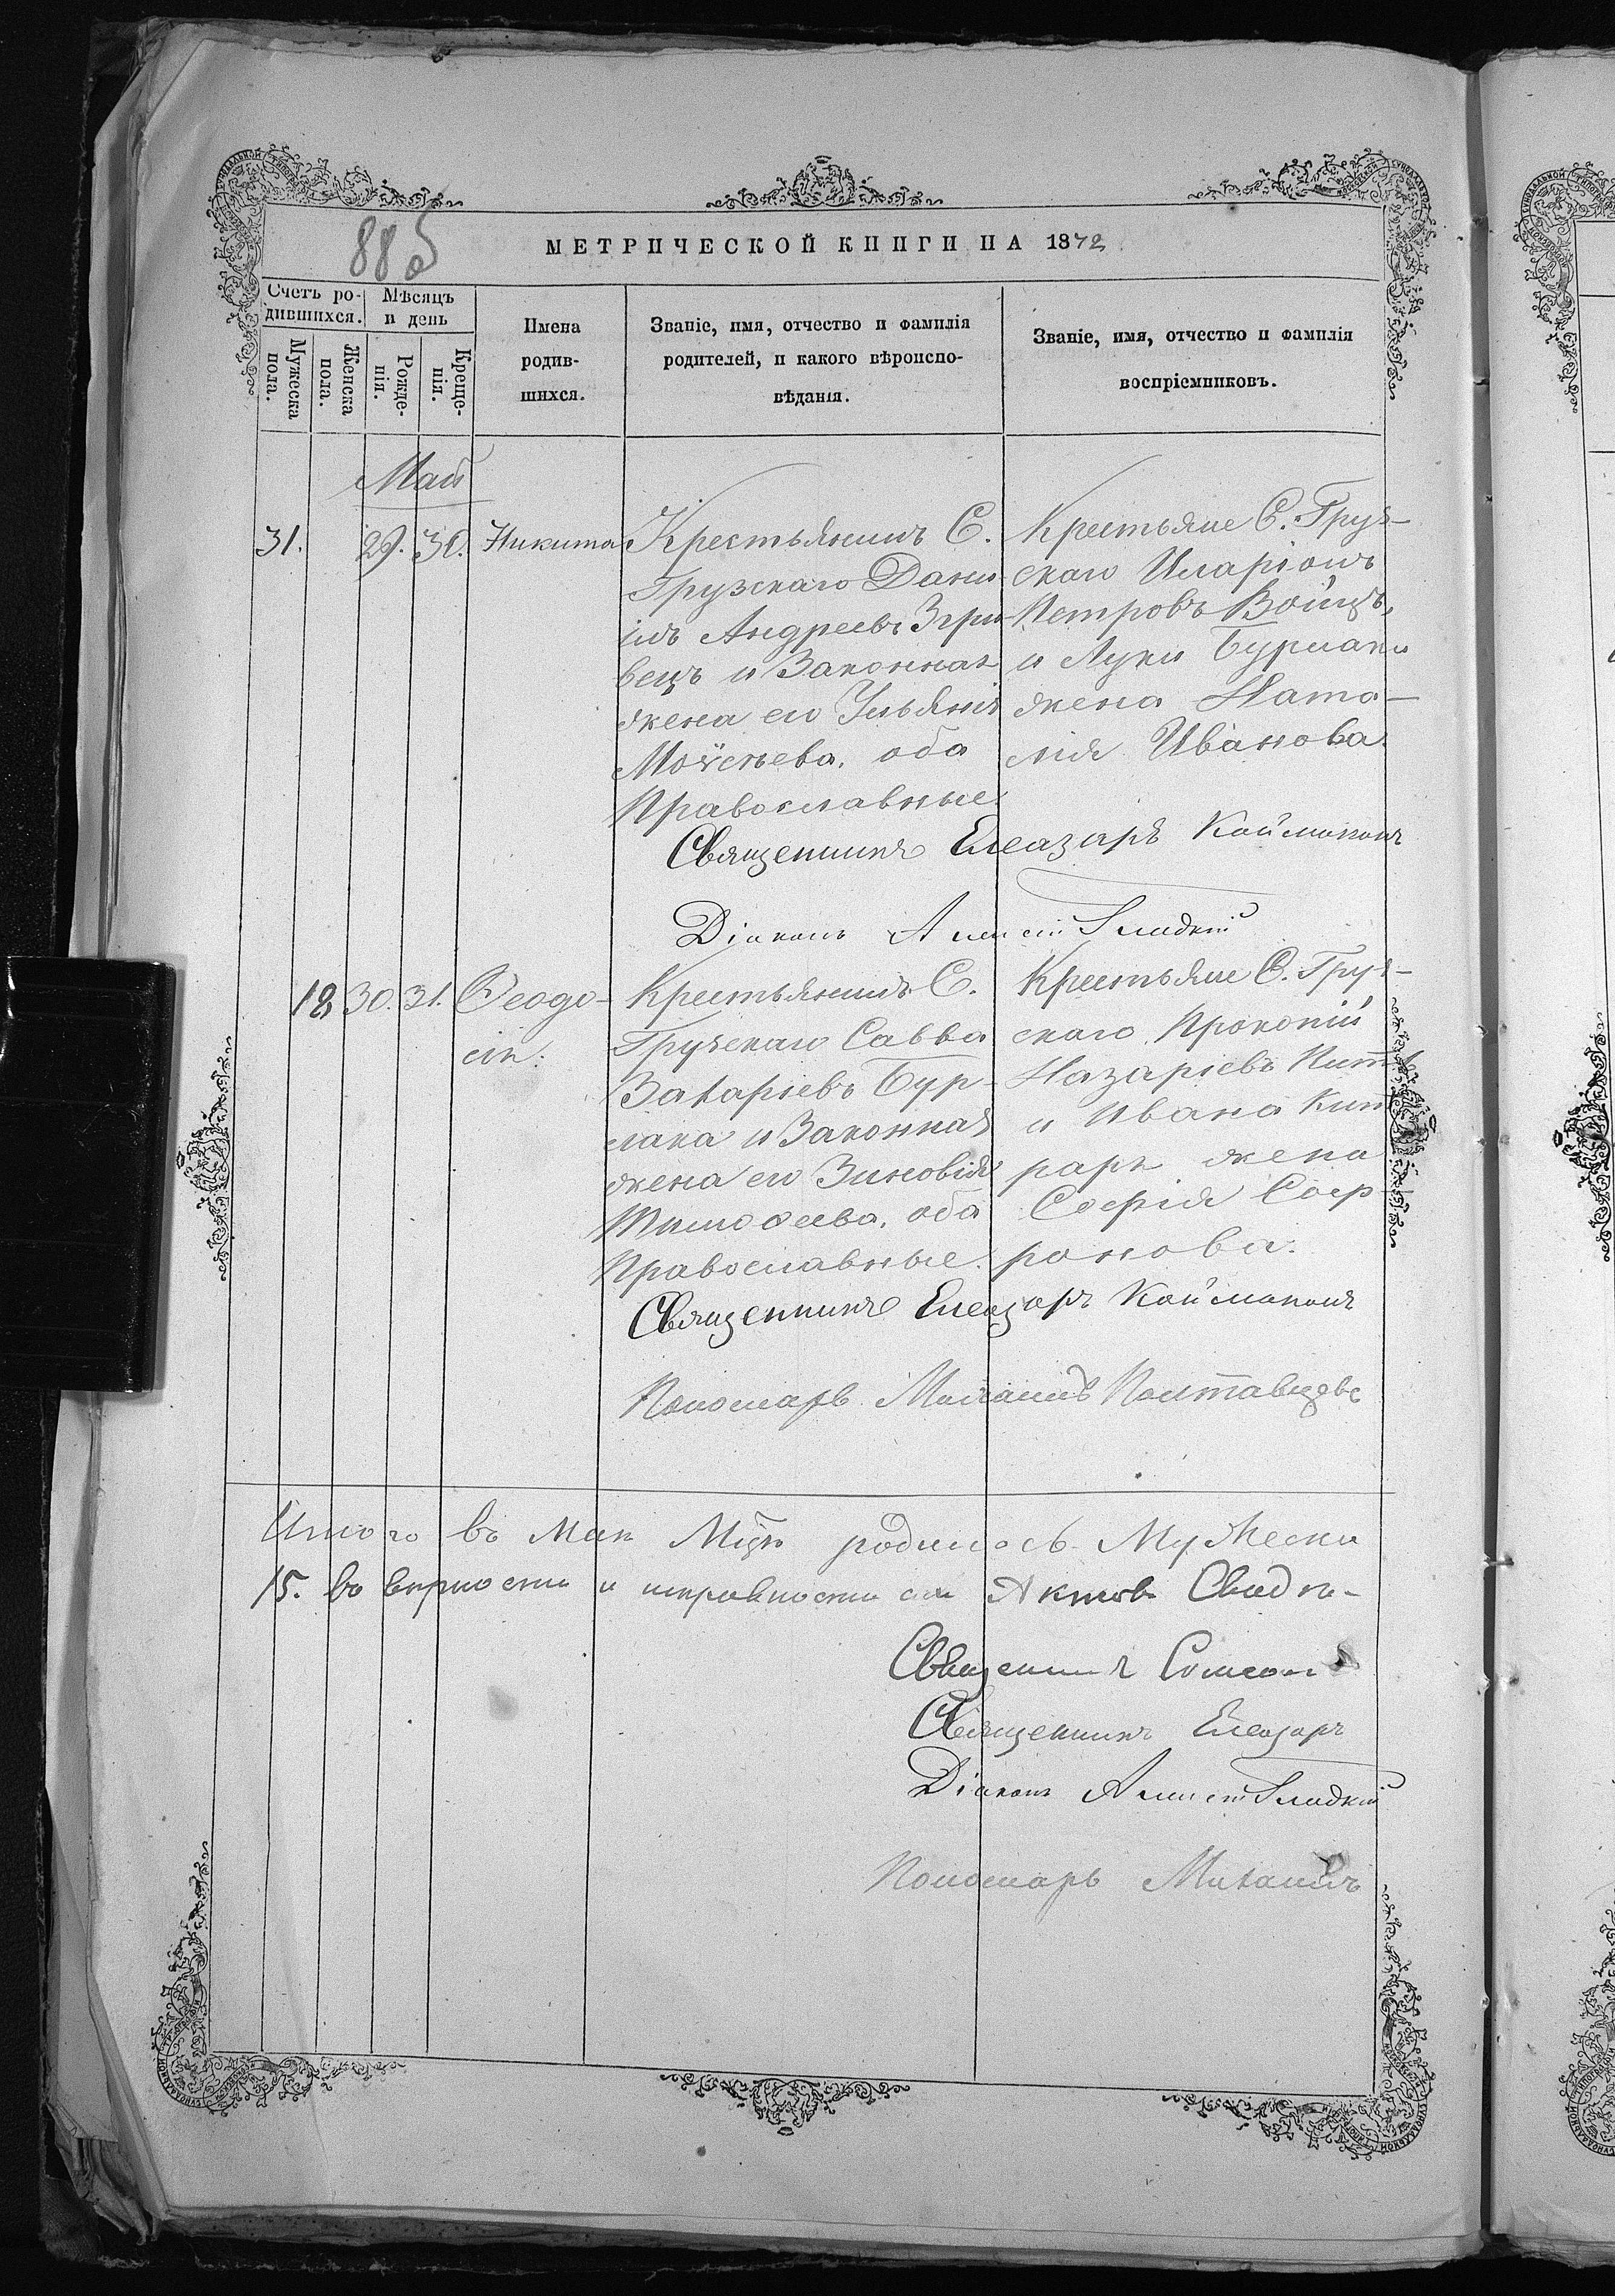 88 об
МЕТРИЧЕСКОЙ КНИГИ НА 1872
Счетъ ро-
дившихся.
Мѣсяцъ
и день
Мужеска
пола.
Женска
пола.
Рожде-
нія.
Креще-
нія.
Имена
родив-
шихся.
Званіе, имя, отчество и фамилія
родителей, и какого вѣроиспо-
вѣданія.
Званіе, имя, отчество и фамилія
воспріемниковъ.
Май
31. 29. 30. Никита
Крестьянинъ С.
Грузскаго Дани-
илъ Андреевъ Згри-
вецъ и Законная
жена его Ульянія
Моѵсеева, оба
Православные.
Крестьяне С. Груз-
скаго Иларіонъ
Петровъ Воицъ,
и Луки Бурлаки
жена Ната-
лія Иванова.
Священникъ Елеазаръ Каймаканъ
Діаконъ Гладкій
18 30. 31. Ѳеодо-
сія.
Крестьянинъ С.
Грузскаго Савва
Захаріевъ Бур-
лака и Законная
жена его Зиновія
Тимоѳеева, оба
Православные.
Крестьяне С. Груз-
скаго Прокопій
Назаріевъ
и Ивана
жена
Софія Соф-
ронова.
Священникъ Елеазаръ Каймаканъ
Пономарь Михаилъ Полтавцевъ
Итого въ Маѣ Мцѣ родилось Мужеска
15. въ вѣрности и исправности сихъ Актовъ Свидѣ-
Священникъ Симеонъ
Священникъ Елеазаръ
Діаконъ Гладкій
Пономарь Михаилъ